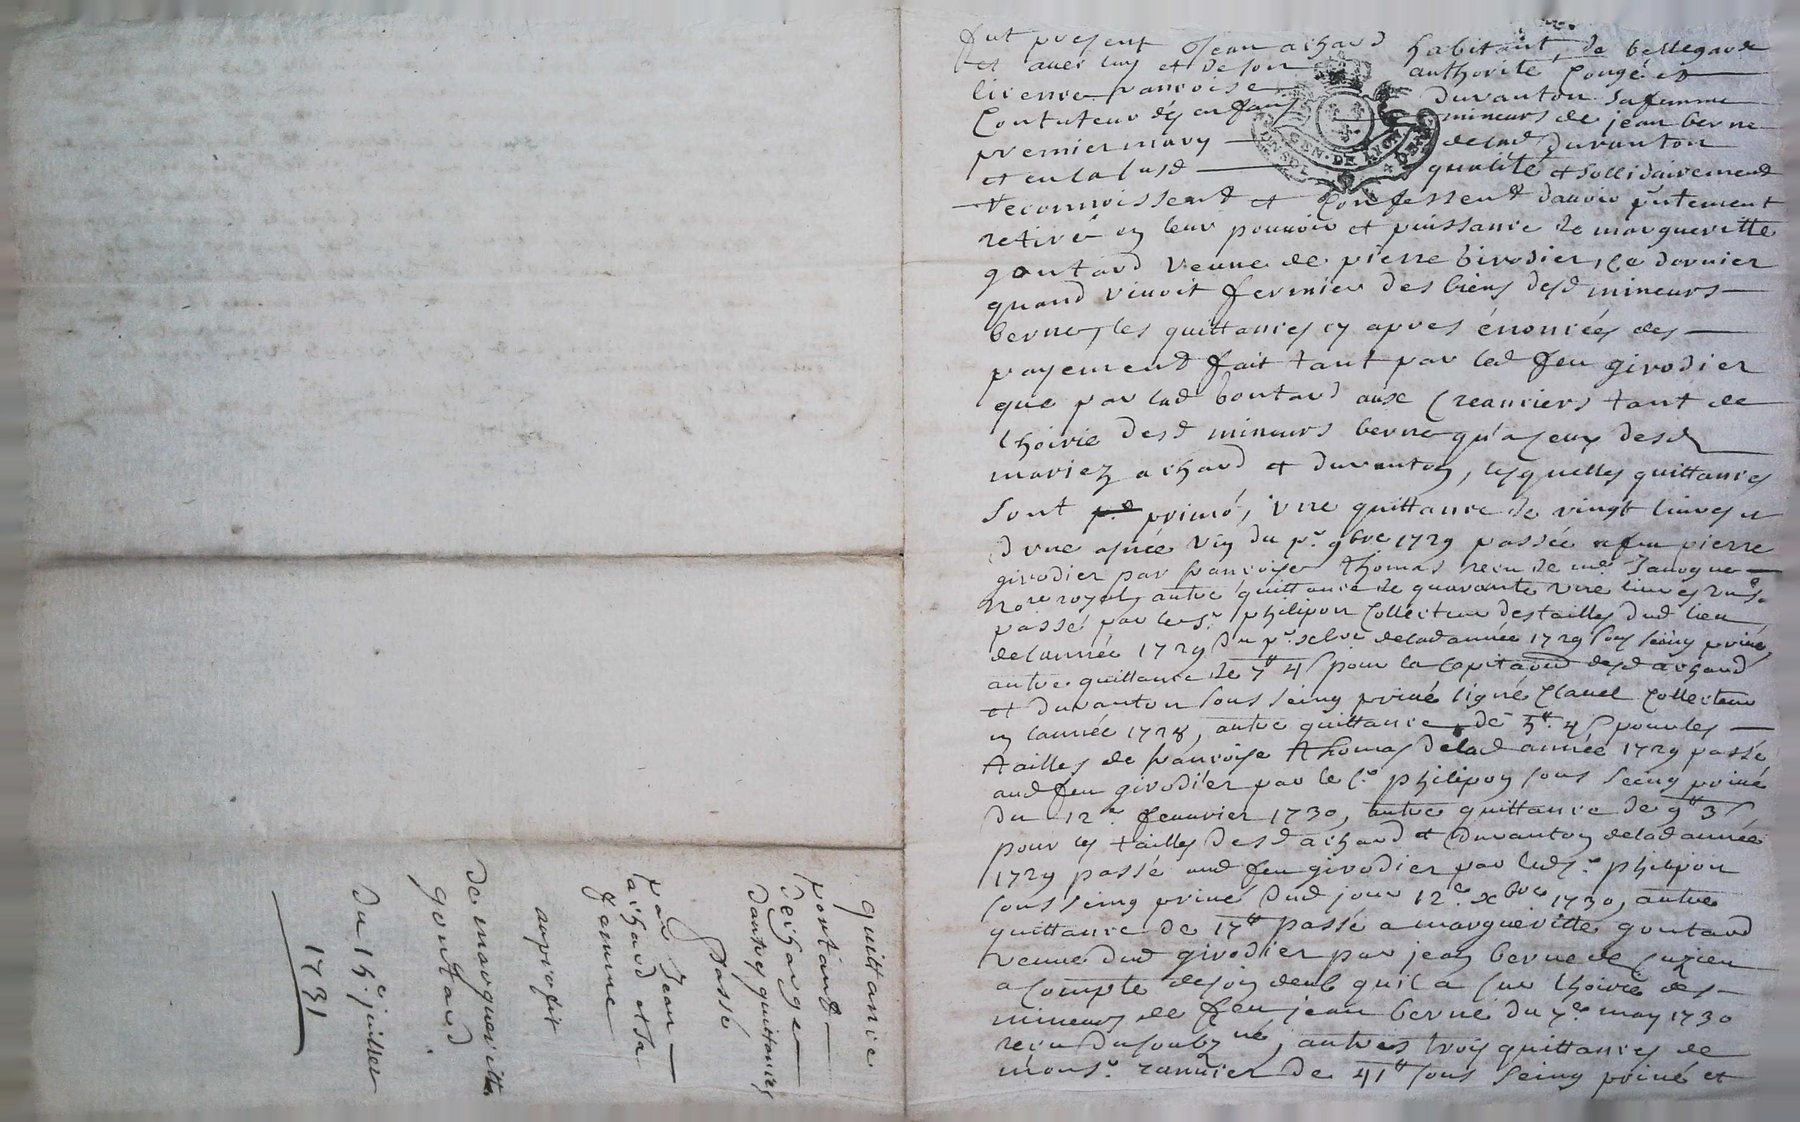 fut present Jean achard habitant de bellegarde
et avec luy et de son authorité Congé et
licence francoise duranton sa femme
Contuteur des enfans mineurs de jean berne
premier mary de lad duranton
et en lad qualité et sollidairement
reconnoissent et Confessent davoir
retiré en leur pouvoir et puissance de margueritte
goutard veuve de pierre girodier, Ce dernier
quand vivoit fermier des biens desd mineurs
berne, les quittances cy apres énoncées des
payement fait tant par led feu girodier
que par lad goutard aux Creanciers tant de
lhoirie desd mineurs berne qu'a ceux desd
mariez achard et duranton, lesquelles quittances
sont primó, une quittance de vingt livres et
dune asnée vin du pr. 9bre 1729 passée a feu pierre
girodier par francoise thomas recu de me Janogue
No.re royal, autre quittance de quarante une livres
passé par le Sr. philipon Collecteur des tailles dud lieu
de lannée 1729 du pr. xbre de lad année 1729 sous seing privé,
autre quittance de 7tt 4s pour la Capitaon desd achard
et duranton sous seing privé signé Clauel Collecteur
en lannée 1728, autre quittance de 5tt 4s pour les
tailles de francoise thomas de lad année 1729 passé
aud feu girodier par le Sr philipon sous seing privé
du 12e feuvrier 1730, autre quittance de 9tt 3s
pour les tailles desd achard et duranton de lad année
1729 passé aud feu girodier par led Sr. philipon
sous seing privé dud jour 12e xbre 1730, autre
quittance de 17tt passé a margueritte goutard
veuve dud girodier par jean berne de Cuzieu
a Compte de son deub qu'il a sur lhoirie des
mineurs de feu jean berne du 7e may 1730
recu du soubzné, autres trois quittances de
monsr. ranvier de 41tt sous seing privé et
GEN. DE LYON
quittance
portant
decharge
dautres quittances
passé
par Jean
achard et sa
femme
au profit
de margueritte
goutard
du 15e juillet
1731